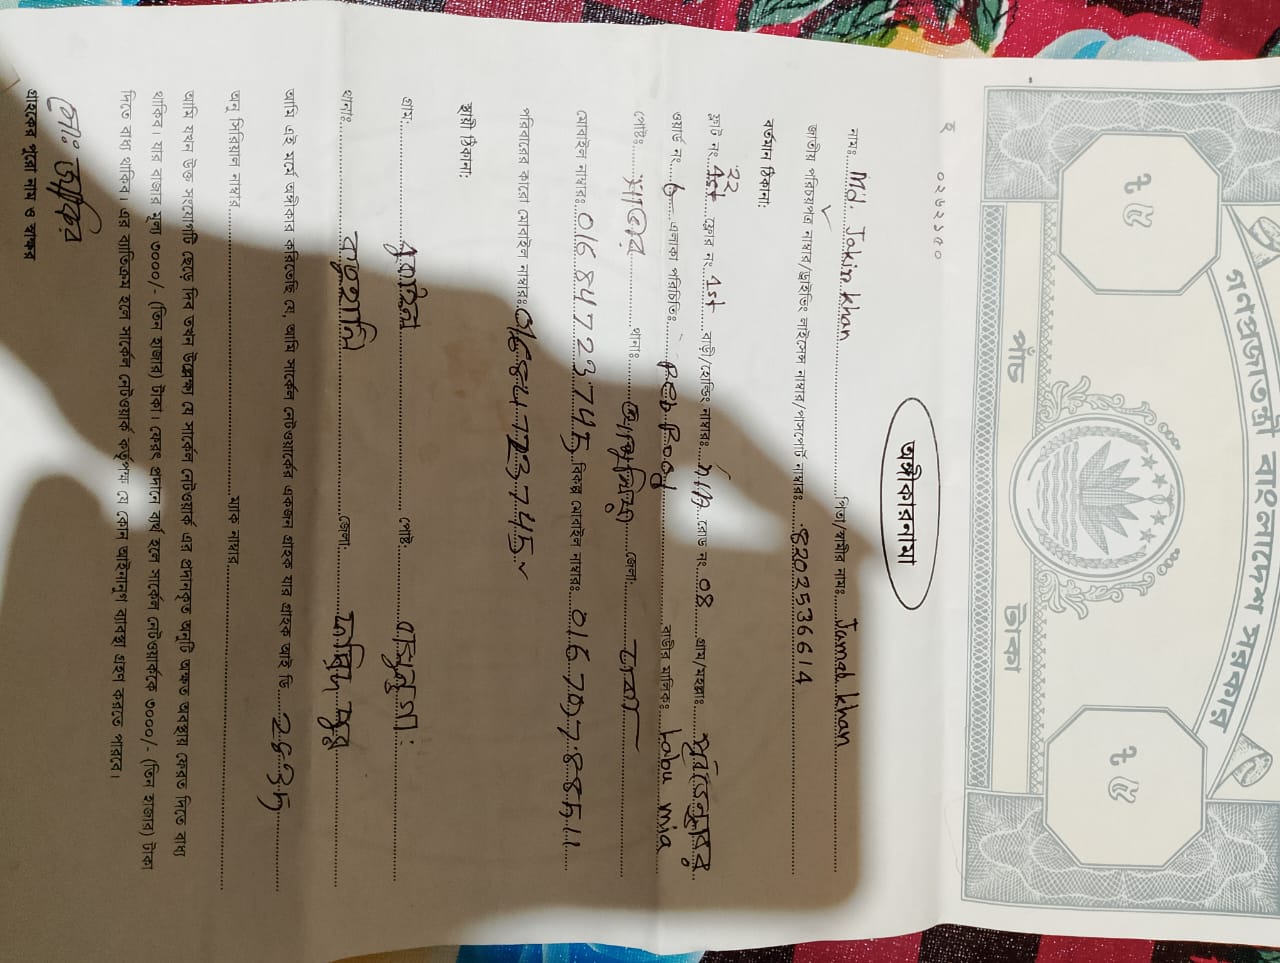 গনপ্রজাতন্ত্রী বাংলাদেশ সরকার
৳ ৫
৳ ৫
পাঁচ টাকা
হ ০২৬২১৫০
অঙ্গীকারনামা
নামঃ Md. Jakir khan পিতা/স্বামীর নামঃ Jamal khan
জাতীয় পরিচয়পত্র নাম্বার/ড্রাইভিং লাইসেন্স নাম্বার/পাসপোর্ট নাম্বারঃ 8202536614
বর্তমান ঠিকানা:
ফ্ল্যাট নং 1st ফ্লোর নং 1st বাড়ী/হোল্ডিং নাম্বারঃ N/A রোড নং 08 গ্রাম/মহল্লাঃ
ওয়ার্ড নং 6 এলাকা পরিচিতিঃ বাড়ীর মালিকঃ Labu mia
পোষ্টঃ সাভার থানাঃ আশুলিয়া জেলা: ঢাকা
মোবাইল নাম্বারঃ 01684723745 বিকল্প মোবাইল নাম্বারঃ
পরিবারের কারো মোবাইল নাম্বারঃ 01684723745
স্থায়ী ঠিকানা:
গ্রাম: পোষ্ট:
থানাঃ জেলা: ফরিদপুর
আমি এই মর্মে অঙ্গীকার করিতেছি যে, আমি সার্কেল নেটওয়ার্কের একজন গ্রাহক যার গ্রাহক আই ডি
অনু সিরিয়াল নাম্বার ম্যাক নাম্বার
আমি যখন উক্ত সংযোগটি ছেড়ে দিব তখন উল্লেক্ষ্য যে সার্কেল নেটওয়ার্ক এর প্রদানকৃত অনুটি অক্ষত অবস্থায় ফেরত দিতে বাধ্য
থাকিব। যার বাজার মূল্য ৩০০০/- (তিন হাজার) টাকা। ফেরৎ প্রদানে ব্যর্থ হলে সার্কেল নেটওয়ার্ককে ৩০০০/- (তিন হাজার) টাকা
দিতে বাধ্য থাকিব। এর ব্যতিক্রম হলে সার্কেল নেটওয়ার্ক কর্তৃপক্ষ যে কোন আইনানুগ ব্যাবস্থা গ্রহণ করতে পারবে।
মোঃ জাকির
গ্রাহকের পুরো নাম ও স্বাক্ষর